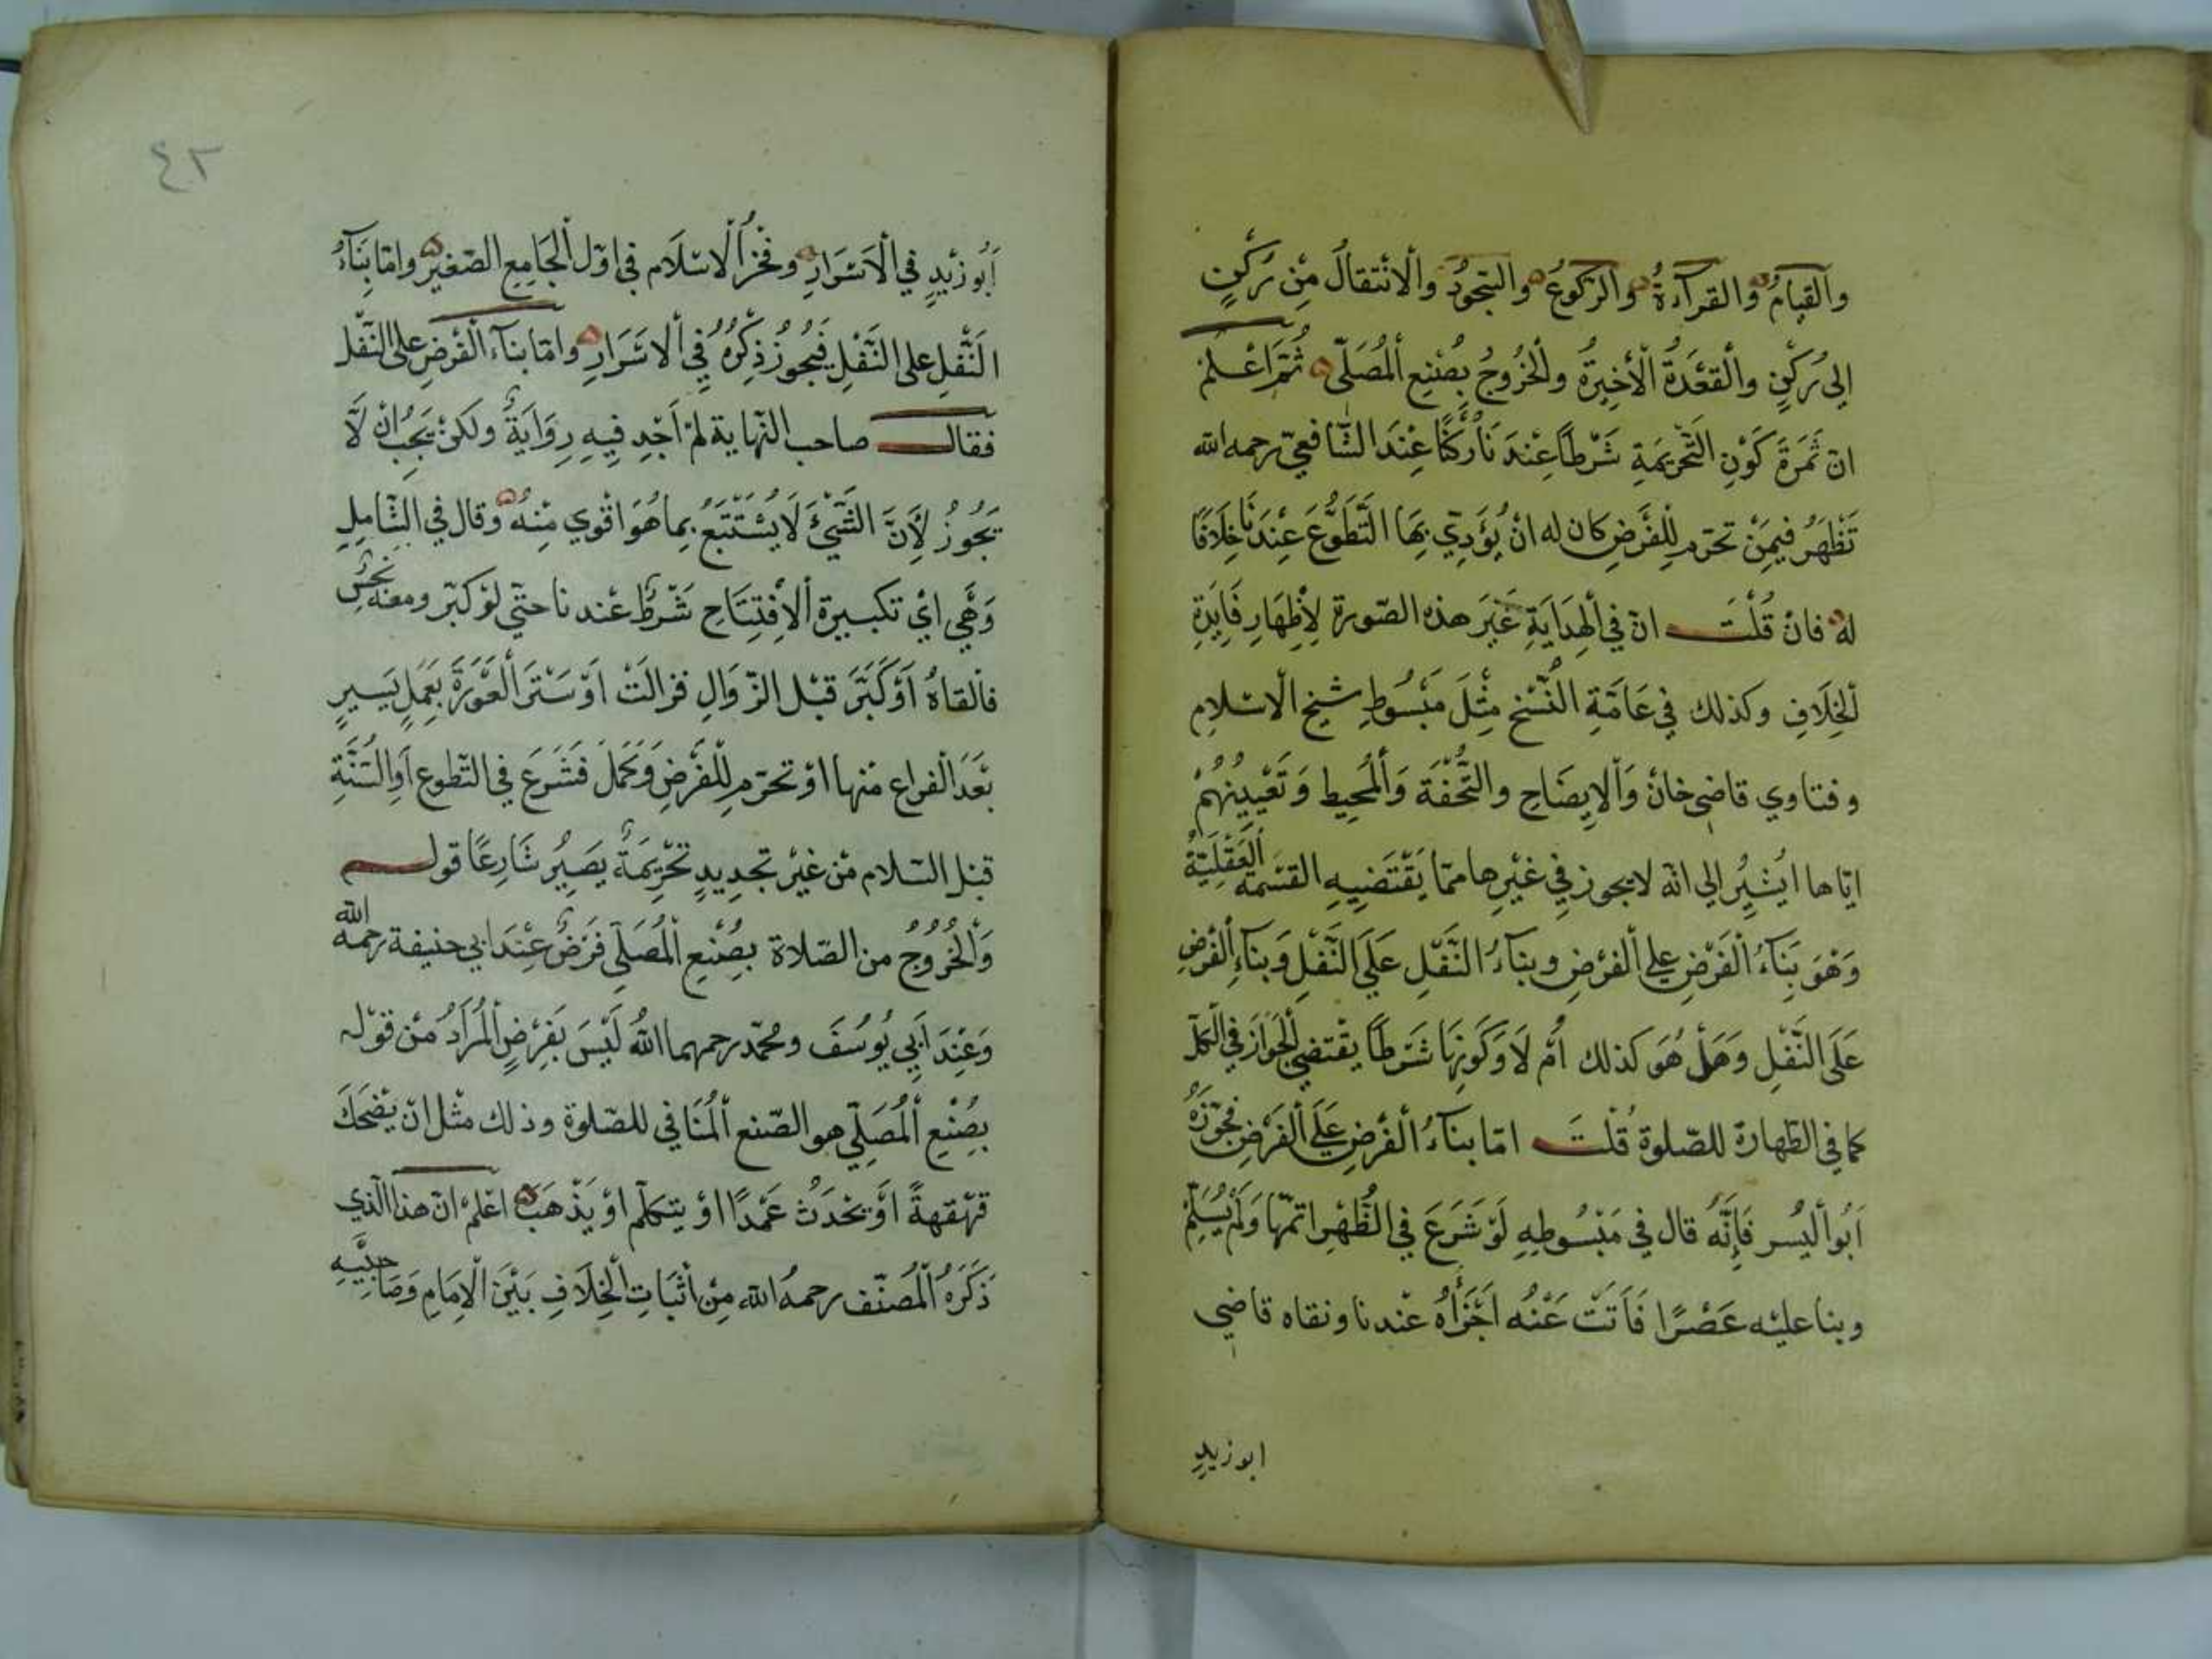 وَالقِيَامُ وَالقراَءةُ وَالرّكُوعُ وَالسّجودُ وَالانْتقالُ مِن رُكنٍ
الى رُكْنٍ والْقَعْدَةُ الْأَخِيرَةُ والْخُرُوجُ بِصُنْعِ الْمُصَلّى ثُمَّ اعْلَمْ
انّ ثَمَرَةَ كَوْنِ التَّحْرِيمَةِ شَرْطًا عِنْدَنَا رُكْنًا عِنْدَ الشّافعيّ رحمه الله
تَظْهَرُ فيمَنْ تحرّم لِلفَرْضِ كان له انْ يُؤَدِّي بِهَا التَّطَوُّعَ عِنْدَنَا خِلَافًا
له فانْ قُلْتَ انّ في الْهِدَايَةِ غَيْرَ هذه الصّورة لِإظهَارِ فَايِدَةِ
الْخِلَافِ وكذلك في عَامَّةِ النُّسْخِ مِثْلَ مَبْسُوطِ شيخ الاسْلامِ
وفتاوي قاضى خانْ وَالْإِيضَاحِ والتُّحْفَةِ وَالْمُحِيطِ وَتَعْيِينُهُمْ
ايّاها ايُشِيرُ الي انّه لا يجوز في غَيْرِها ممّا يَقْتَضِيهِ القسْمة العَقْلِيَّةُ
وَهْوَ بِنَاءُ الْفَرْضِ على الْفرْضِ وبناءُ النَّفْلِ عَلَى النَّفْلِ وَبناءِ الْفَرْضِ
عَلَى النَّفْلِ وَهَلْ هُوَ كذلك اَمْ لَا وَكَونِهَا شَرْطًا يقْتضي الْجَوَازَ فِي الْكلّ
كما في الطّهارة للصّلوة قُلْتَ امّا بناءُ الْفَرْضِ عَلَى الْفَرْضِ فَجَوَّزَهُ
اَبُو الْيُسر فَإِنَّهُ قال في مَبْسُوطِهِ لَوْ شَرَعَ في الظُّهْرِ اتمّها وَلَمْ يُسَلِّمْ
وبنا عليْه عَصْرًا فَاتَتْ عَنْهُ اَجْزَأَهُ عنْدنا ونقاه قاضِي
ابوزيد
٤٣
اَبُو زيْدٍ في الْاَسْرَارِ وفَخْرُ الْاسْلَام في اوّل الْجَامِعِ الصّغير وامّا بِنَاءُ
النَّفْلِ على النَّفْلِ فَيَجُوزُ ذِكْرُهُ فِي الْاسْرَارِ وامّا بناء الْفَرْضِ على النّفْل
فقال صاحب النّهاية لمْ اَجِد فِيهِ رِوَايَةً ولكنْ يَجِبُ انْ لَا
يَجُوزُ لِأَنَّ الشَّيْئَ لَا يَسْتَتْبَعُ بِما هُوَ اقْوي مِنْهُ وقال في الشّامِلِ
وَهْي ايْ تكبيرة الْاِفْتِتَاحِ شَرْطٌ عنْد ناحتّي لوْ كبّر ومعه نَجَسٌ
فالقاهُ اَوْ كَبَّرَ قبْل الزّوَالِ فزالتْ اَوْ سَتَرَ الْعَوْرَةَ بِعَمَلٍ يَسيرٍ
بَعْدَ الْفراع منْها اوْ تحرّم لِلْفَرْضِ وَكَمَلَ فَشَرَعَ في التّطوع اَوِ السُّنَّةِ
قبْل السّلام مْن غيْر تجديدٍ تحْرِيمَةٌ يَصِيرُ شَارِعًا قوله
وَالْخُرُوجُ من الصّلاة بِصُنْعِ الْمُصَلّي فَرَضٌ عِنْدَ ابي حنيفة رحمه الله
وَعِنْدَ اَبِي يُوسُفَ ومُحمّد رحمهما اللهُ لَيْسَ بِفَرْضٍ الْمُرَادُ منْ قوْله
بِصُنْعِ الْمُصَلّي هو الصّنع الْمُنَافي للصّلوة وذلك مثْل انْ يضْحَكَ
قهْقهةً اَوْ يُحْدَثُ عَمْدًا اوْ يتكلّم اوْ يَذْهَبَ اعْلمْ انّ هذا الّذي
ذَكَرَهُ الْمُصَنّف رحمهُ الله مِنْ اثْبَاتِ الْخِلَافِ بَيْنَ الْاِمَامِ وَصَاحِبَيْهِ